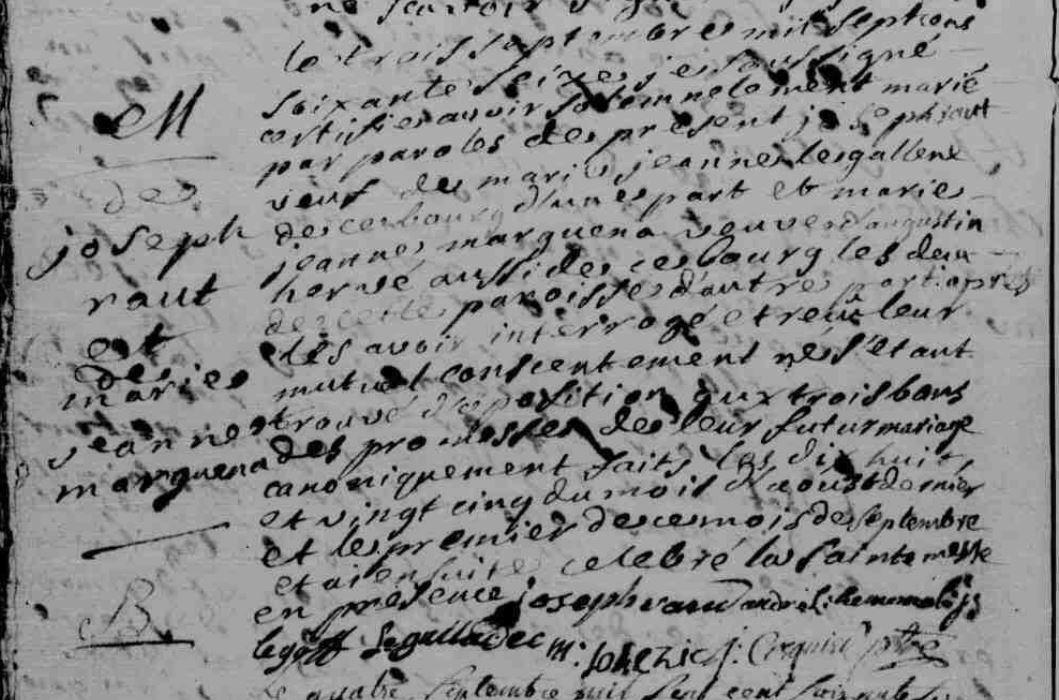 le trois septembre mil sept cens
soixante seize je soussigné
certifie avoir solemnelement marié
par paroles de present joseph raut
veuf de marie jeanne le gallene
de ce bourg d'une part et marie
jeanne marguena veuve d'augustin
hervé aussi de ce bourg les deux
de cette paroisse d'autre part apres
les avoir interrogé et reçu leur
mutuel consentement ne s'étant
trouvé d'oposition aux trois bans
des promesses de leur futur mariage
canoniquement faits les dix huit
et vingt cinq du mois d'aoust dernier
et le premier de ce mois de septembre
et ai ensuite celebré la sainte messe
en presence joseph raut andré
le goff le guilladec m: j: ptre
le quatre septembre mil sept cent soixante
M
de
joseph
raut
et
de marie
jeanne
marguena
B